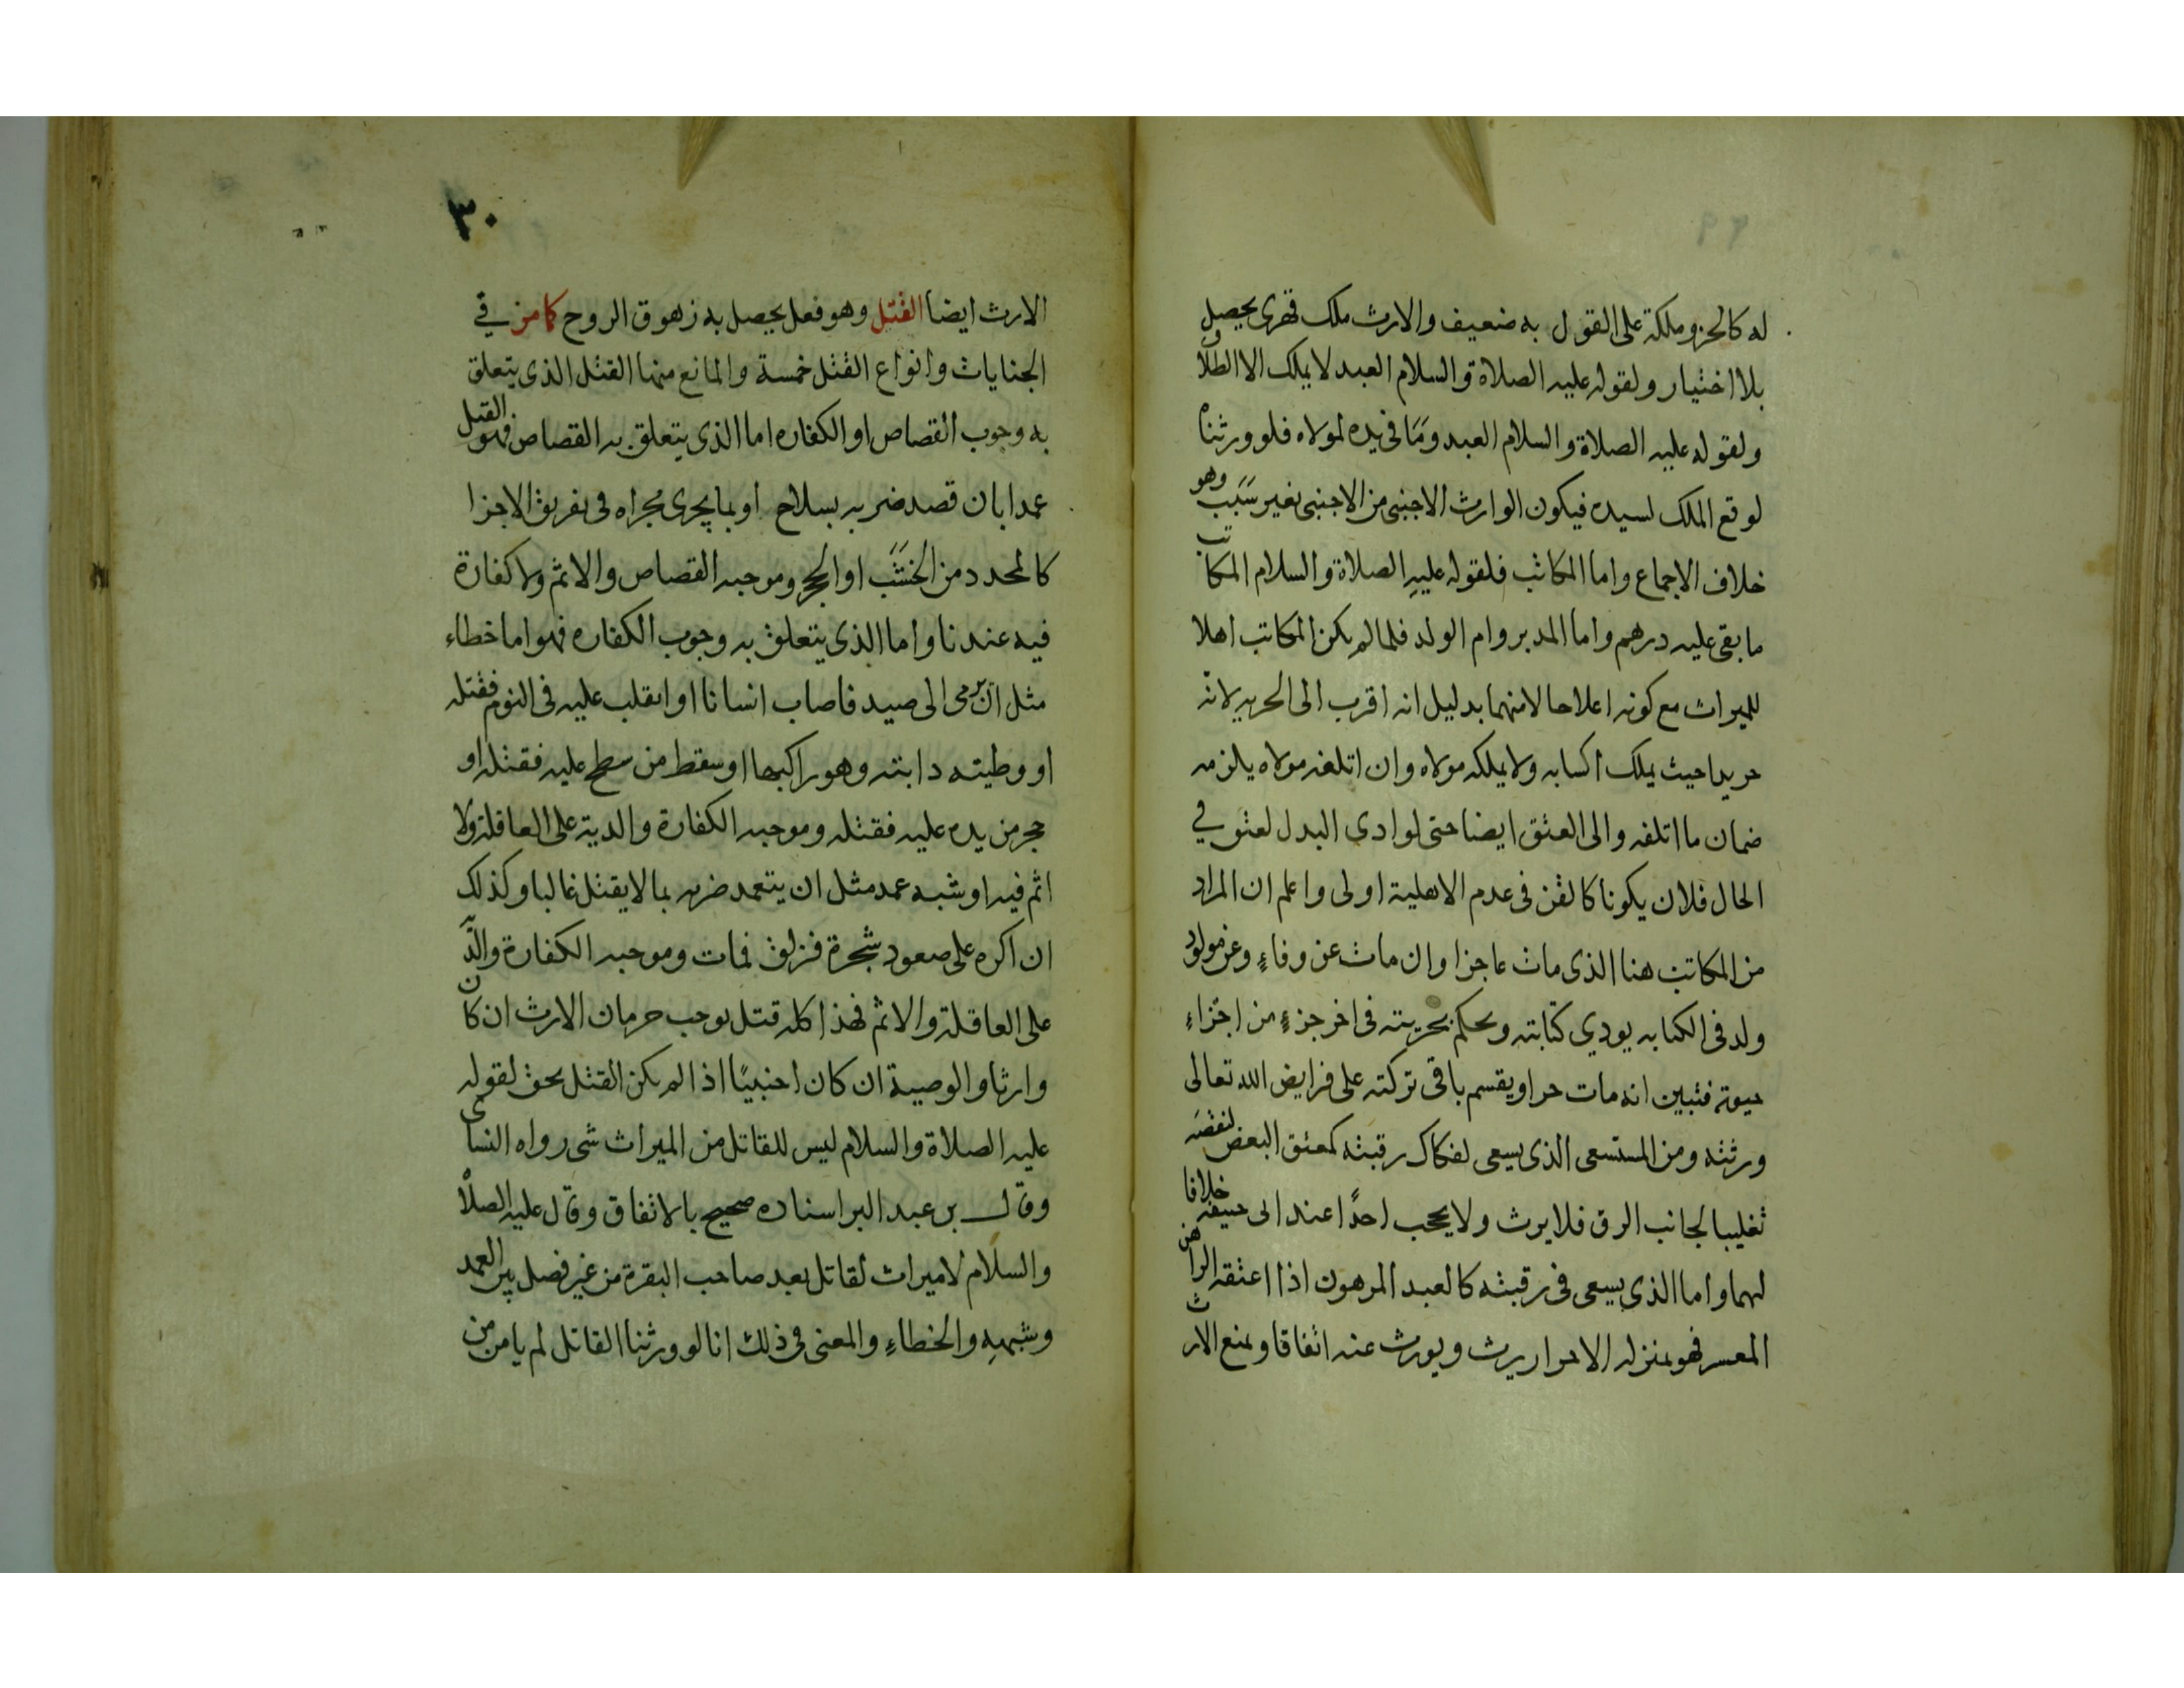 له كالحز وملكة على القول به ضعيف والارث ملك قهرى يحصل
بلا اختيار ولقوله عليه الصلاة والسلام العبد لا يملك الا الطلاق
ولقوله عليه الصلاة والسلام العبد وما فى يده لمولاه فلو ورثناه
لوقع الملك لسيده فيكون الوارث الاجنبى من الاجنبى بغير سبب وهو
خلاف الاجماع واما المكاتب فلقوله عليه الصلاة والسلام المكاتب
ما بقى عليه درهم واما المدبر وام الولد فلما لم يكن المكاتب اهلا
للميراث مع كونه اعلا حالا منهما بدليل انه اقرب الى الحريه لانه
حر يدا حيث يملك اكسابه ولا يملكه مولاه وان اتلفه مولاه يلزمه
ضمان ما اتلفه والى العتق ايضا حتى لو ادى البدل لعتق في
الحال فلان يكونا كالقن فى عدم الاهلية اولى واعلم ان المراد
من المكاتب هنا الذى مات عاجزا وان مات عن وفاءٍ وعن مولود
ولد فى الكتابه يودي كتابته ويحكم بحريته فى اخر جزءٍ من اجزاءِ
حيوته فتبين انه مات حرا ويقسم باقى تركته على فرايض الله تعالى
ورثته ومن المستسعى الذى يسعى لفكاك رقبته كمعتق البعض لنقصه
تغليبا لجانب الرق فلا يرث ولا يحجب احدًا عند ابى حنيفه خلافا
لهما واما الذى يسعى فى رقبته كالعبد المرهون اذا اعتقه الراهن
المعسر فهو بمنزله الاحرار يرث ويورث عنه اتفاقا ويمنع الارث
٣٠
الارث ايضا القتل وهو فعل يحصل به زهوق الروح كما مر في
الجنايات وانواع القتل خمسة والمانع منها القتل الذى يتعلق
به وجوب القصاص او الكفاره اما الذى يتعلق به القصاص فهو القتل
عمدا بان قصد ضربه بسلاح او بما يجرى مجراه فى تفريق الاجزا
كالمحدد من الخشب او الحجر وموجبه القصاص والاثم ولا كفارة
فيه عندنا واما الذى يتعلق به وجوب الكفاره فهو اما خطاء
مثل ان يرمى الى صيد فاصاب انسانا او انقلب عليه فى النوم فقتله
او وطيته دابته وهو راكبها او سقط من سطح عليه فقتله او
حجر من يده عليه فقتله وموجبه الكفارة والدية على العاقلة ولا
اثم فيه او شبه عمد مثل ان يتعمد ضربه بما لا يقتل غالبا وكذلك
ان اكره على صعود شجرة فزلق فمات وموجبه الكفارة والديّة
على العاقلة والاثم فهذا كله قتل يوجب حرمان الارث ان كان
وارثا والوصية ان كان اجنبيًا اذا لم يكن القتل بحق لقوله
عليه الصلاة والسلام ليس للقاتل من الميراث شى رواه النساى
وقال بن عبد البر اسناده صحيح بالاتفاق وقال عليه الصلاة
والسلام لا ميراث لقاتل بعد صاحب البقرة من غير فصل بين العمد
وشبهه والخطاءِ والمعنى فى ذلك انا لو ورثنا القاتل لم يامن من